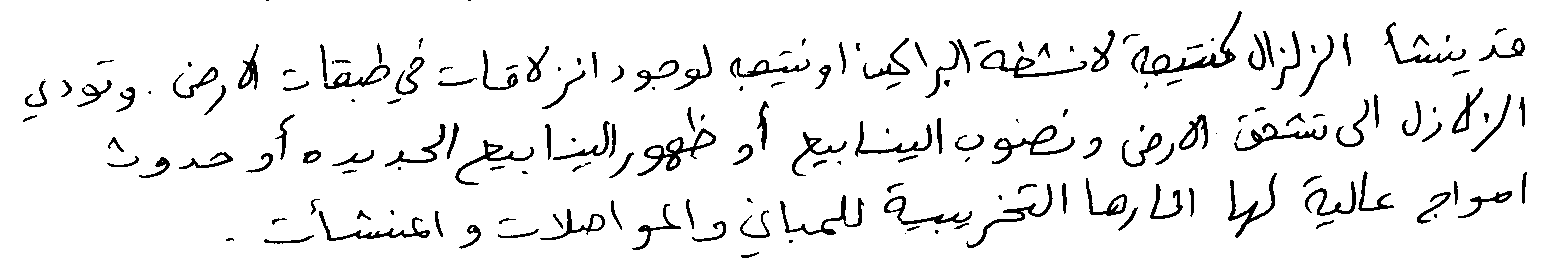 قد ينشأ الزلزال كنتيجة لانشطة البراكين او نتيجه لوجود انزلاقات في طبقات الارض . وتودي
الزلازل الى تشقق الارض و نضوب الينابيع أو ظهور الينابيع الجديده أو حدوث
امواج عالية لها اثارها التخريبية للمباني والمواصلات و المنشأت .